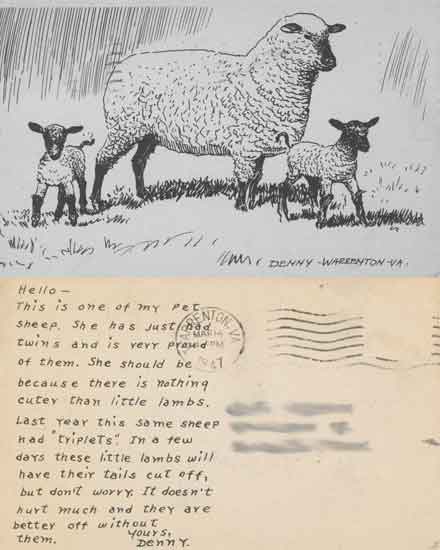 DENNY-WARRENTON-VA.
Hello—
This is one of my pet
sheep. She has just had
twins and is very proud
of them. She should be
because there is nothing
cuter than little lambs.
Last year this same sheep
had "triplets". In a few
days these little lambs will
have their tails cut off,
but don't worry. It doesn't
hurt much and they are
better off without
them. Yours,
Denny.
WARRENTON, VA.
MAR 14
PM